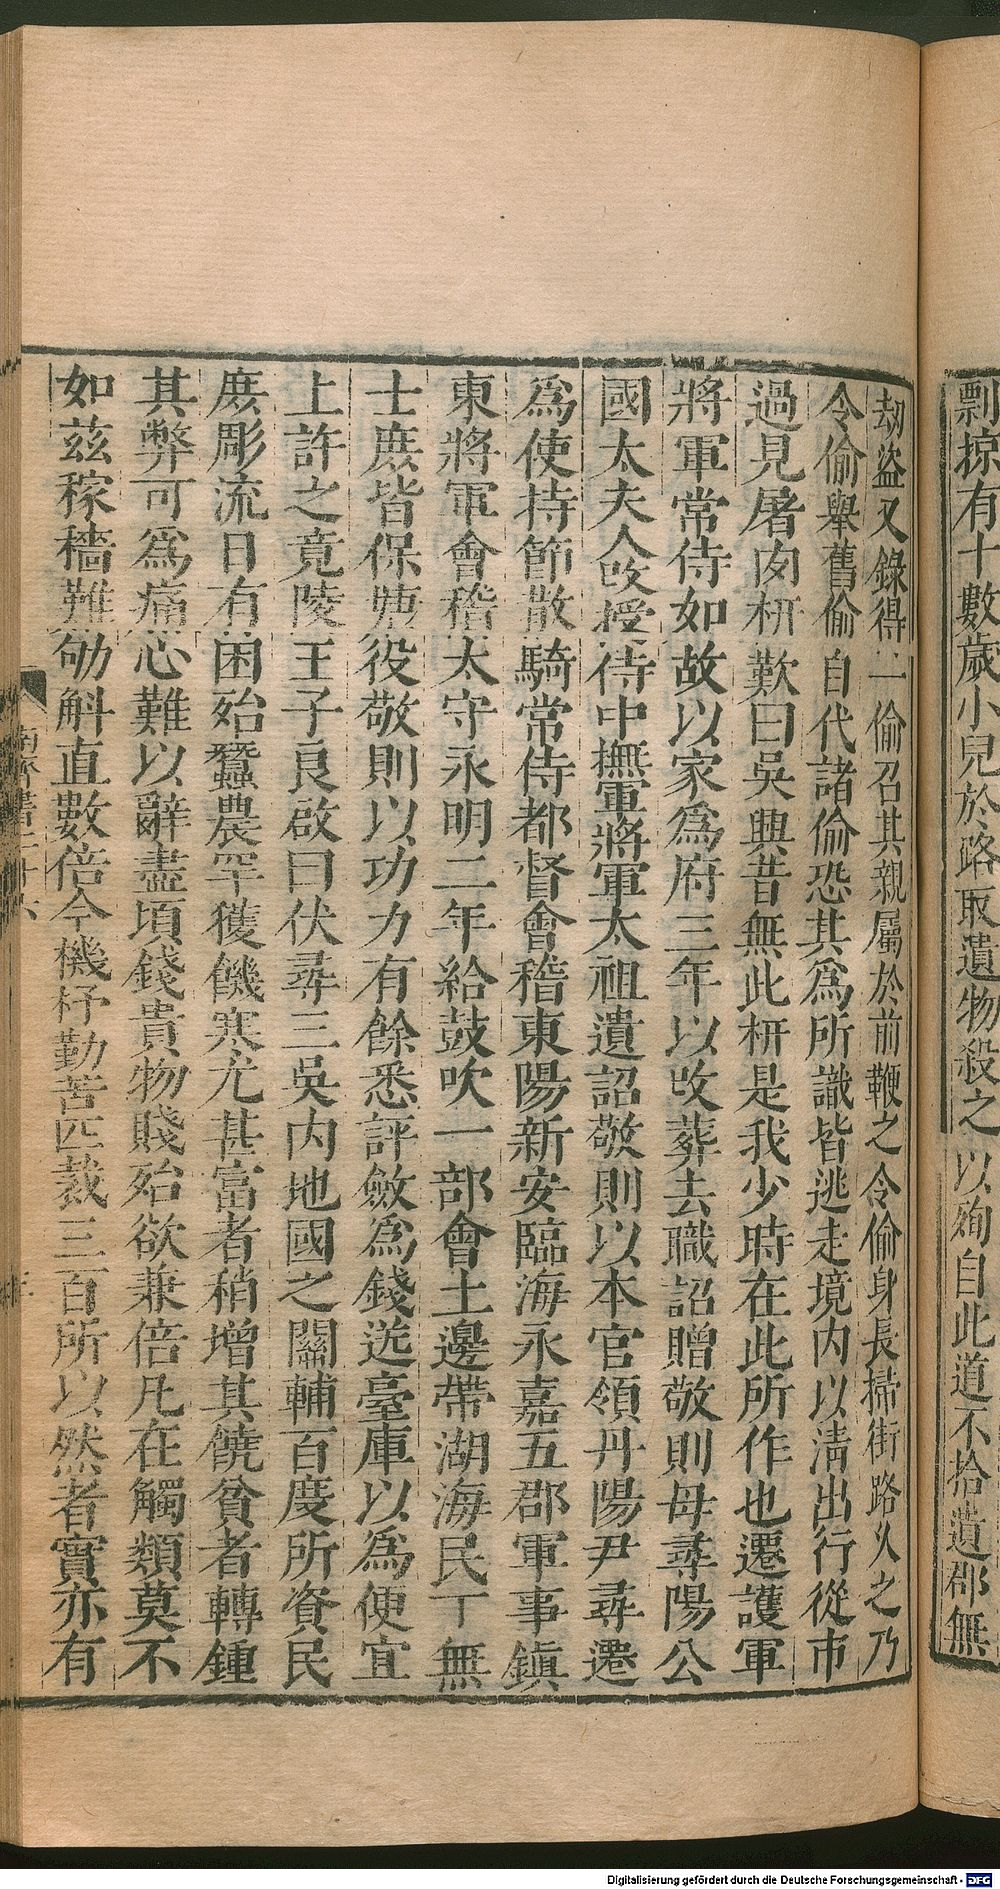 剽掠有十數歲小兒於路取遺物殺之以殉自此道不拾遺郡無
劫盜又錄得一偷召其親屬於前鞭之令偷身長掃街路久之乃
令偷舉舊偷自代諸偷恐其爲所識皆逃走境内以淸出行從市
過見屠肉枅歎曰吳興昔無此枅是我少時在此所作也遷護軍
將軍常侍如故以家爲府三年以攺葬去職詔贈敬則母尋陽公
國太夫人攺授侍中撫軍將軍太祖遺詔敬則以本官領丹陽尹尋遷
爲使持節散騎常侍都督會稽東陽新安臨海永嘉五郡軍事鎭
東將軍會稽太守永明二年給鼓吹一部會土邊帶湖海民丁無
士庶皆保塘役敬則以功力有餘悉評斂爲錢送臺庫以爲便宜
上許之竟陵王子良啟曰伏尋三吳内地國之關輔百度所資民
庶彫流日有困殆蠶農罕獲饑寒尤甚富者稍增其饒貧者轉鍾
其弊可爲痛心難以辭盡頃錢貴物賤殆欲兼倍凡在觸類莫不
如茲稼穡難劬斛直數倍今機杼勤苦匹裁三百所以然者實亦有
南齊書二十六
Digitalisierung gefördert durch die Deutsche Forschungsgemeinschaft - DFG